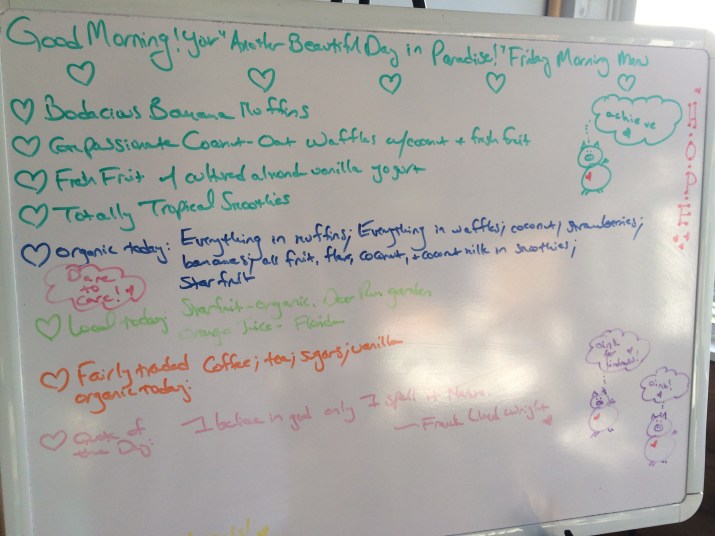 Good Morning! Your "Another Beautiful Day in Paradise!" Friday Morning Menu
Bodacious Banana Muffins
Compassionate Coconut-Oat Waffles w/coconut + fresh fruit
Fresh Fruit w/ cultured almond vanilla yogurt
Totally Tropical Smoothies
organic today: Everything in muffins; Everything in waffles; coconut; strawberries;
bananas; all fruit, flax, coconut, + coconut milk in smoothies;
Starfruit
Dare
to
Care!
Local today: Starfruit - organic. Deer Run garden
orange Juice - Florida
Fairly traded Coffee; tea; sugars; vanilla
organic today:
Quote of
the Day:
I believe in god only I spell it Nature.
— Frank Lloyd Wright
achieve
H.O.P.E.
oink
for
kindness!
oink!